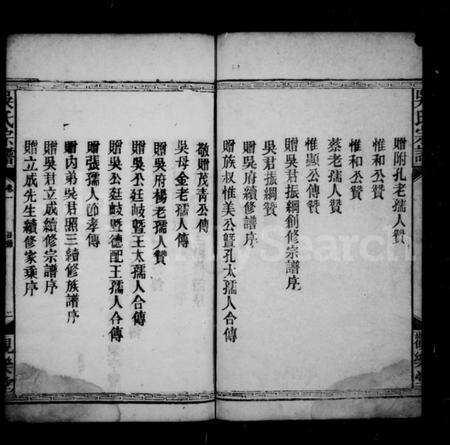 贈附孔老孺人贊
惟和公贊
惟和公贊
蔡老孺人贊
惟顯公傳贊
贈吳君振綱創修宗譜序
吳君振綱贊
贈吳府續修譜序
贈族叔惟美公暨孔太孺人合傳
敬贈茂青公傳
吳母金老孺人傳
贈吳府楊老孺人贊
贈吳公廷岐暨王太孺人合傳
贈吳公廷岐暨德配王孺人合傳
贈張孺人節孝傳
贈內弟吳君照三續修族譜序
贈吳君立成續修宗譜序
贈立成先生續修家乘序
吳氏宗譜
卷一
二
FamilySearch